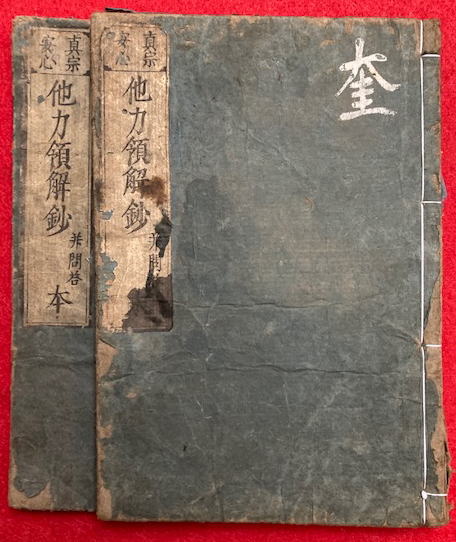 奎
真宗
安心
他力領解鈔
并問
真宗
安心
他力領解鈔
并問答
本